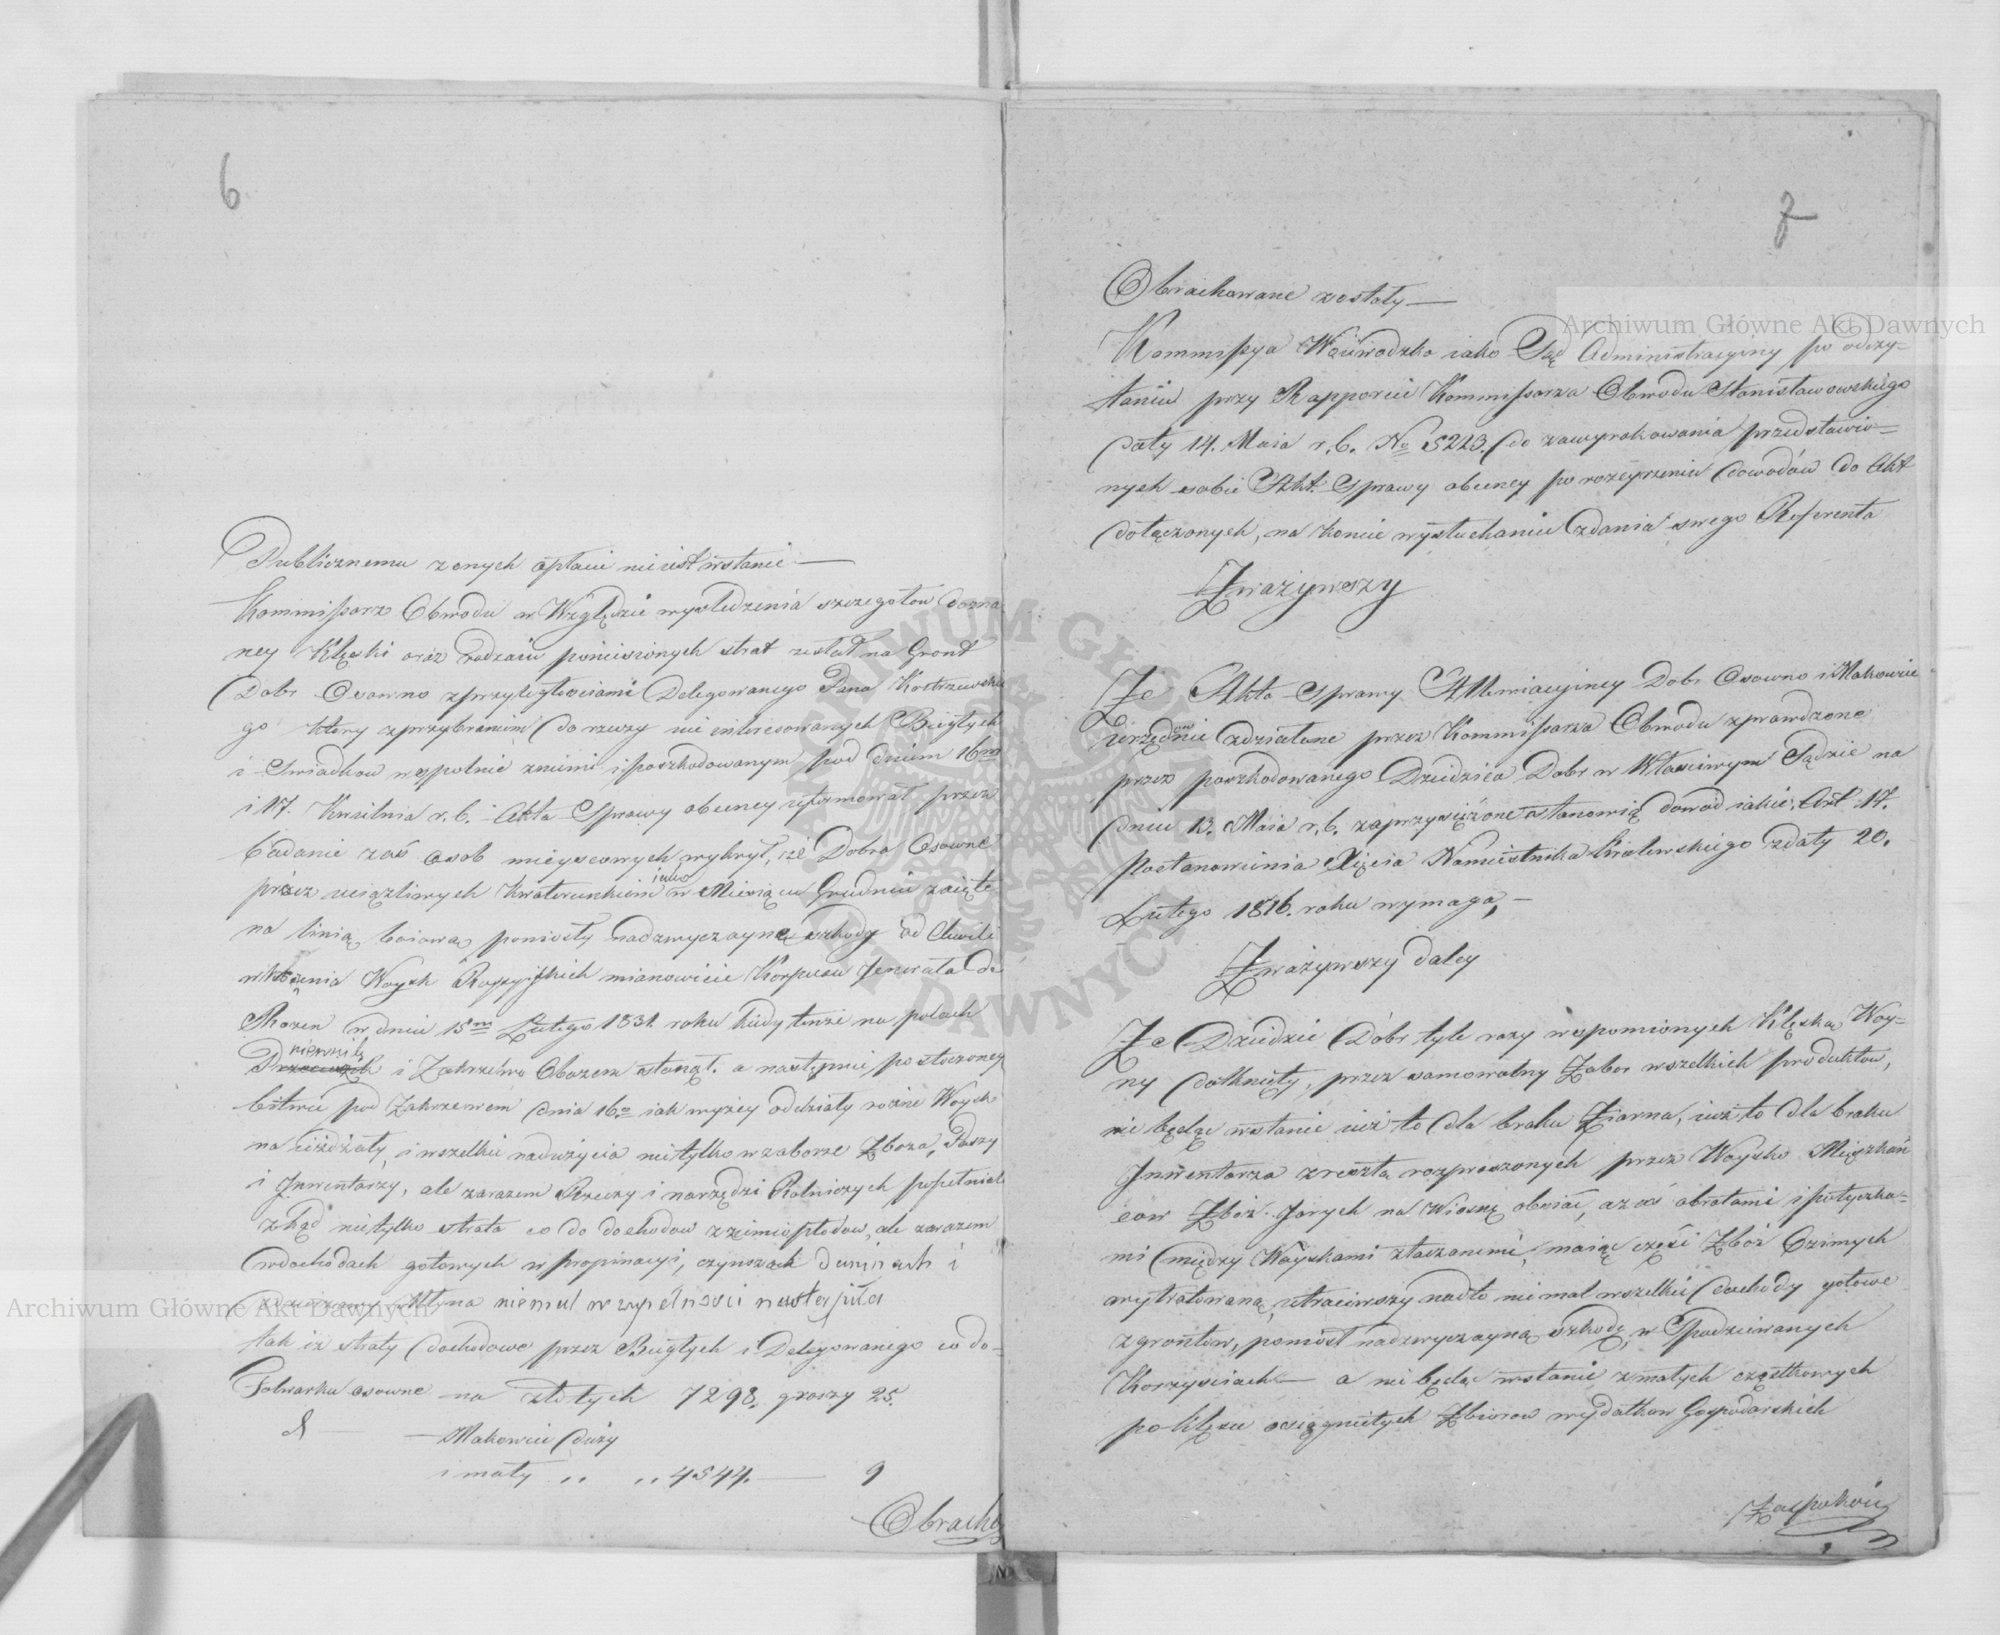 6
Publicznemu z onych opłacie nie iest wstanie —
Kommissarz Obwodu w Względzie wyśledzenia szczegołow dozna
ney Klęski oraz rodzaiu poniesionych strat zesłał na Gront
Dobr Osowno z przyległościami Delegowanego Pana Kostrzewskie
go który z przybraniem do rzeczy nie interesowanych Biegłych
i Swiadkow wspolnie z niemi i poszkodowanym pod dniem 16m
i 17. Kwietnia r. b. Akta Sprawy obecney uformował przez
badanie zaś osob mieyscowych wykrył, iż Dobra Osowne
przez uciążliwych Kwaterunkiem iako w Miesiącu Grudniu zaięte
na linią boiową poniosły nadzwyczayne szkody od Chwili
wkroczenia Woysk Rossyiskich mianowicie Korpusu Jenerała de
Rozen w dniu 15m Lutego 1831 roku kiedy tenże na polach
niewnik
i Zakrzewo Obozem stanął. a następnie po stoczoney
bitwie pod Zakrzewem dnia 16o iak wyżey oddziały rożne Woysk
na ieżdżały, i wszelkie nadużycia nie tylko w zaborze Zboża, Paszy
i Jnwentarzy, ale zarazem Rzeczy i narzędzi Rolniczych popełniały
zkąd nie tylko strata co do dochodow z ziemiopłodów, ale zarazem
w dochodach gotowych w propinacyi, czynszach daninach i
dzierzawy Młyna niemal w zupełności nastąpiła
tak iż straty dochodowe przez Biegłych i Delegowanego co do-
Folwarku osowne na złotych 7298. groszy 25.
d — — Makowiec duży
i mały „ „ 4544. — 9
Obracho
7
Obrachowane zostały —
Kommissya Woiewodzka iako Sąd Administracyiny po odczy-
taniu przy Rapporcie Kommissarza Obwodu Stanisławowskiego
daty 14. Maia r. b. No 5223. do zawyrokowania przedstawio-
nych sobie Akt Sprawy obecney po rozeyrzeniu dowodów do Akt
dołączonych, na koniec wysłuchaniu Zdania swego Referenta
Zważywszy
Że Akta Sprawy Allewiacyiney Dobr Osowno i Makowiec
Urzędownie zdziałane przez Kommissarza Obwodu sprawdzone
przez poszkodowanego Dziedzica Dobr w Właściwym Sądzie na
dniu 13. Maia r. b. zaprzysiężone stanowią dowod iakie Art 17.
Postanowienia Xięcia Namiestnika Krolewskiego z daty 20.
Lutego 1816. roku wymaga, —
Zważywszy daley
Że Dziedzic Dóbr tyle razy wspomionych Klęską Woy-
ny dotknięty, przez samowolny Zabor wszelkich produktow,
nie będąc wstanie iuż to dla braku Ziarna, iuż to dla braku
Jnwentarza zresztą rozproszonych przez Woysko Mieszkań
cow Zbóż Jarych na Wiosnę obsiać, a zaś obrotami i potyczka-
mi między Woyskami staczanemi, maiąc część Zbóż Ozimych
wytratowaną, utraciwszy nadto niemal wszelkie dochody gotowe
z grontow, poniosł nadzwyczayną szkodę, w Spodziewanych
Korzysciach — a nie będąc wstanie z małych cząstkowych
po klęsce osiągniętych Zbiorow wydatkow Gospodarskich
Zaspokoić
Archiwum Główne Akt Dawnych
Archiwum Główne Akt Dawnych
ARCHIWUM GŁÓWNE AKT DAWNYCH